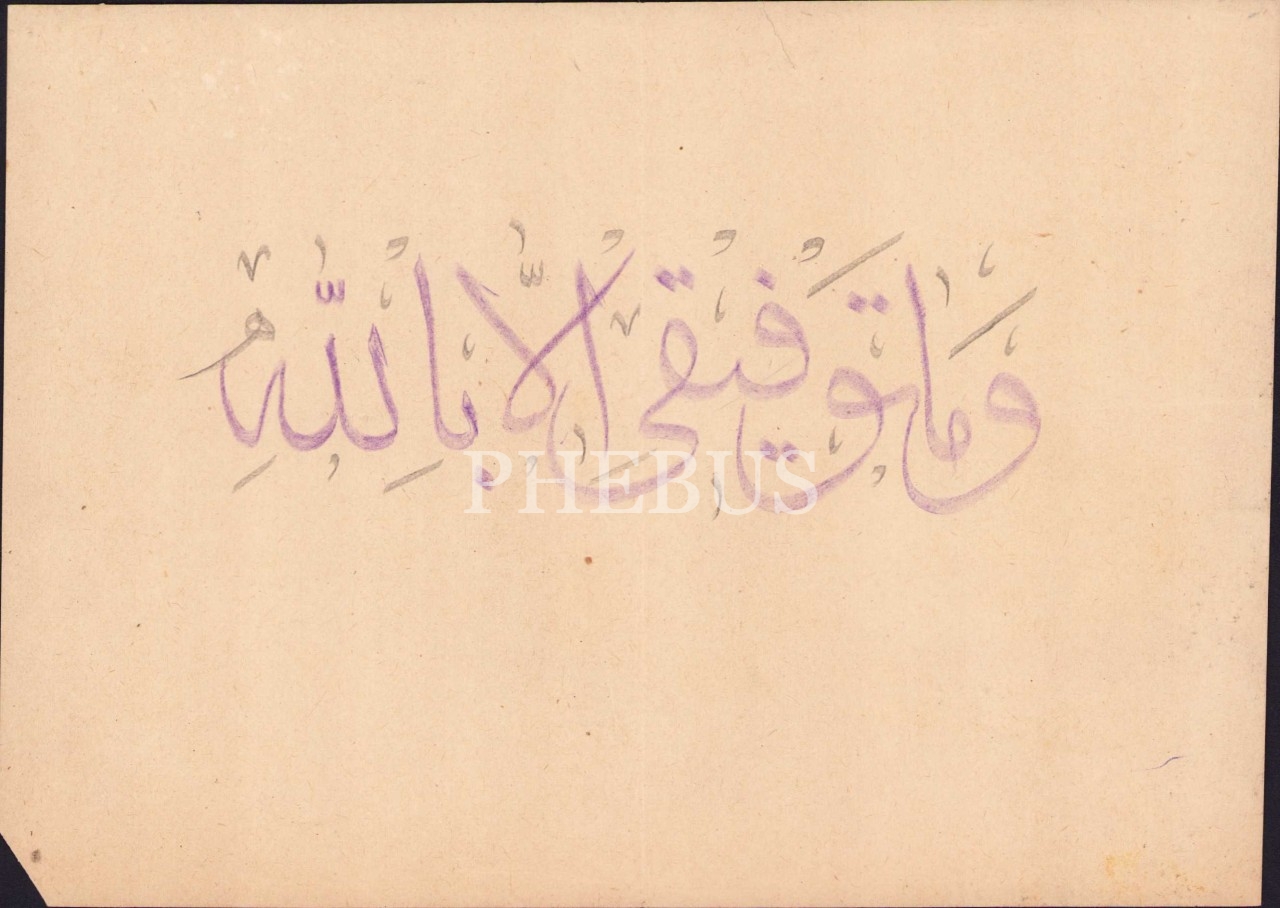 وما توفيقى الا بالله
PHEBUS